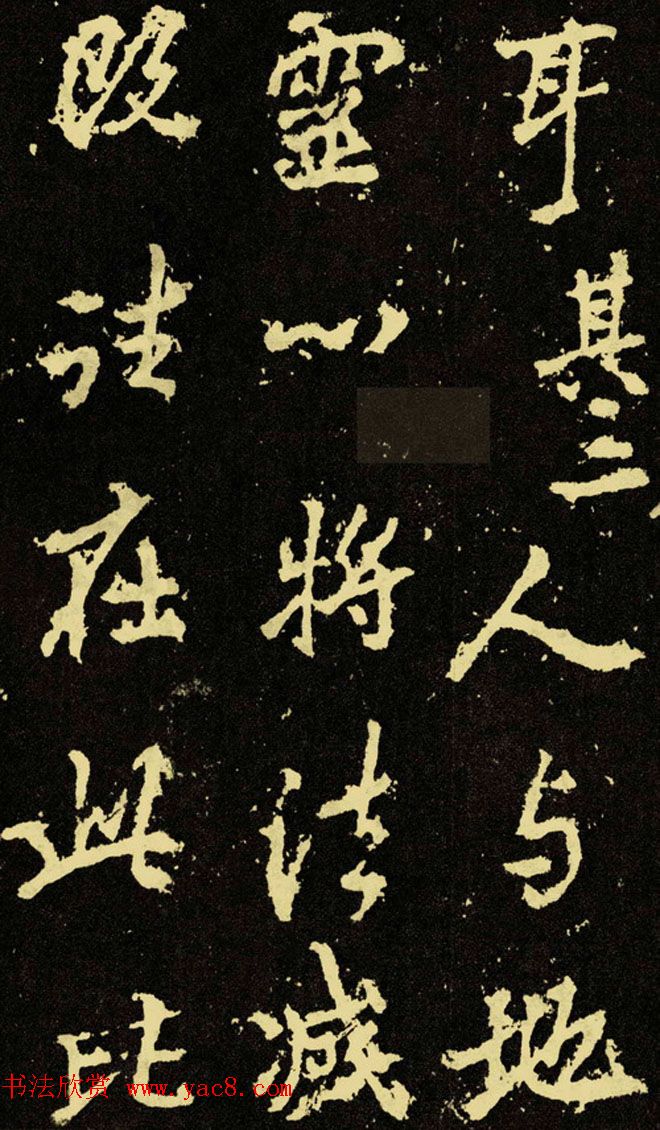 耳其三人与地
靈以將法減
在此比
书法欣赏 www.yac8.com